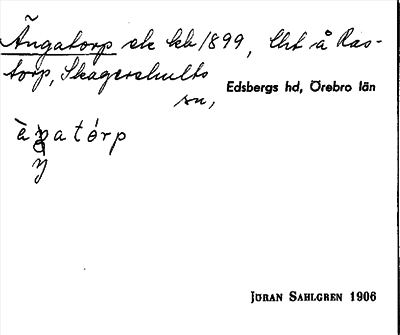 Ängatorp ek kk 1899, lht å Ras-
torp, Skagershults
sn, Edsbergs hd, Örebro län
àŋatórp
JÖRAN SAHLGREN 1906